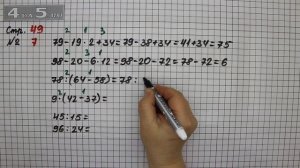 4 5
Стр. 49
2 1 3
№ 7 79-19·2+34=79-38+34=41+34=75
2 3 1
98-20-6·12=98-20-72=78-72=6
2 1
78:(64-58)=78:
2 1
9·(42-37)=
45:15=
96:24=